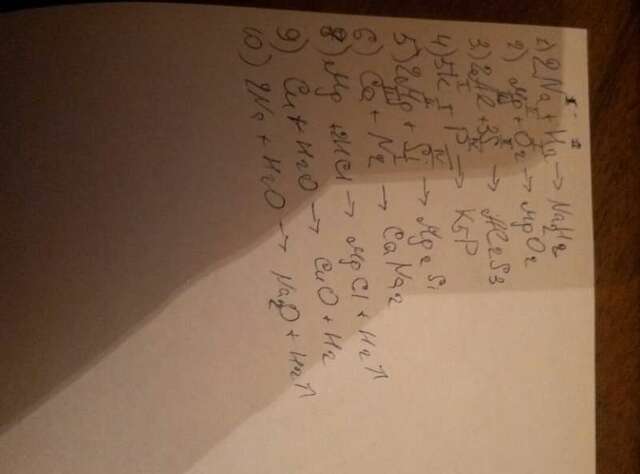 1) 2Na + H2 → NaH2
2) Mg + O2 → MgO2
3) 2Al + 3S → Al2S3
4) 5K + P → K5P
5) 2Mg + Si → Mg2Si
6) Ca + N2 → CaNa2
8) Mg + 2HCl → MgCl + H2↑
9) Cu + H2O → CuO + H2
10) 2Na + H2O → Na2O + H2↑